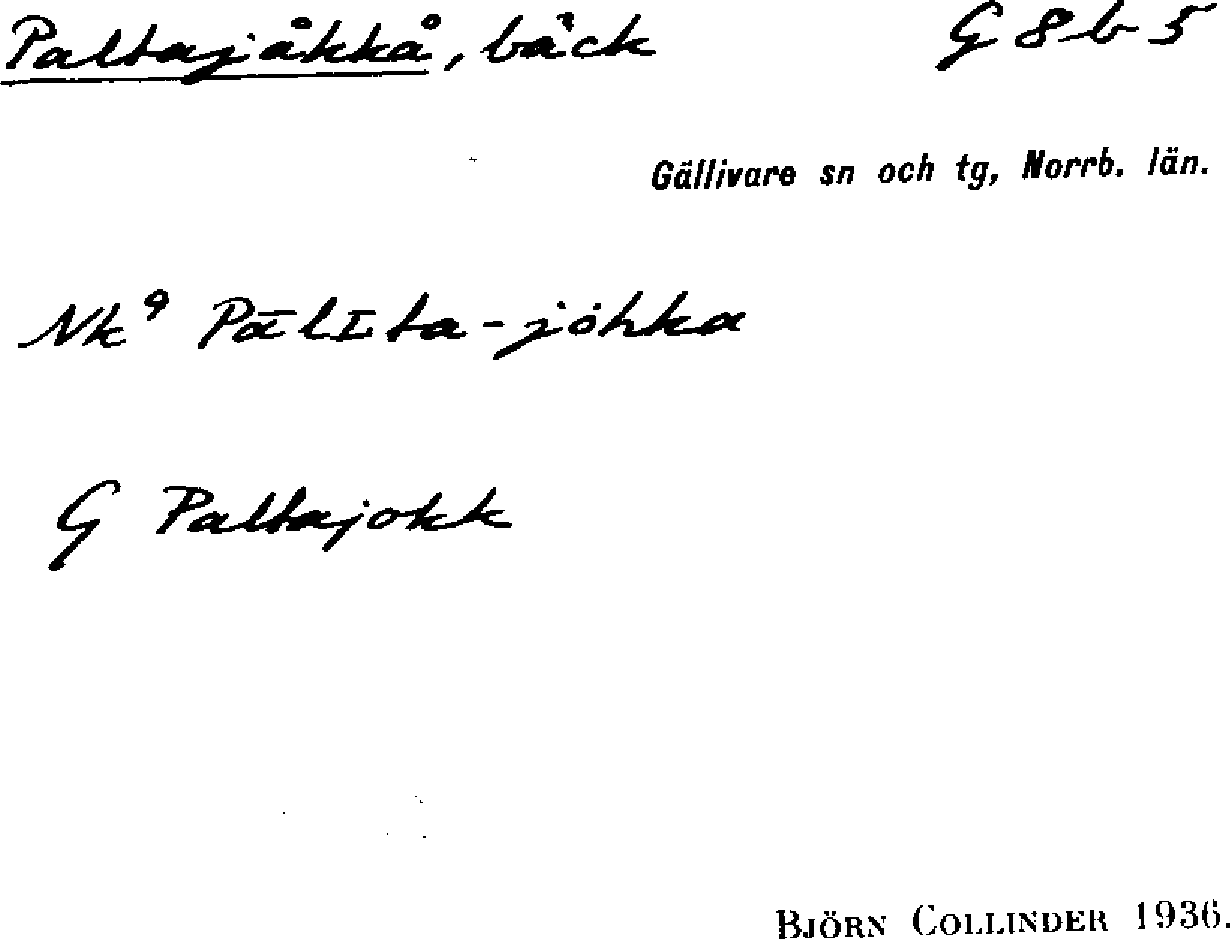 Paltajåkkå, bäck G 8 b 5
Gällivare sn och tg, Norrb. län.
Nk⁹ Pālɪta-jòhka
G Paltajokk
BJÖRN COLLINDER 1936.